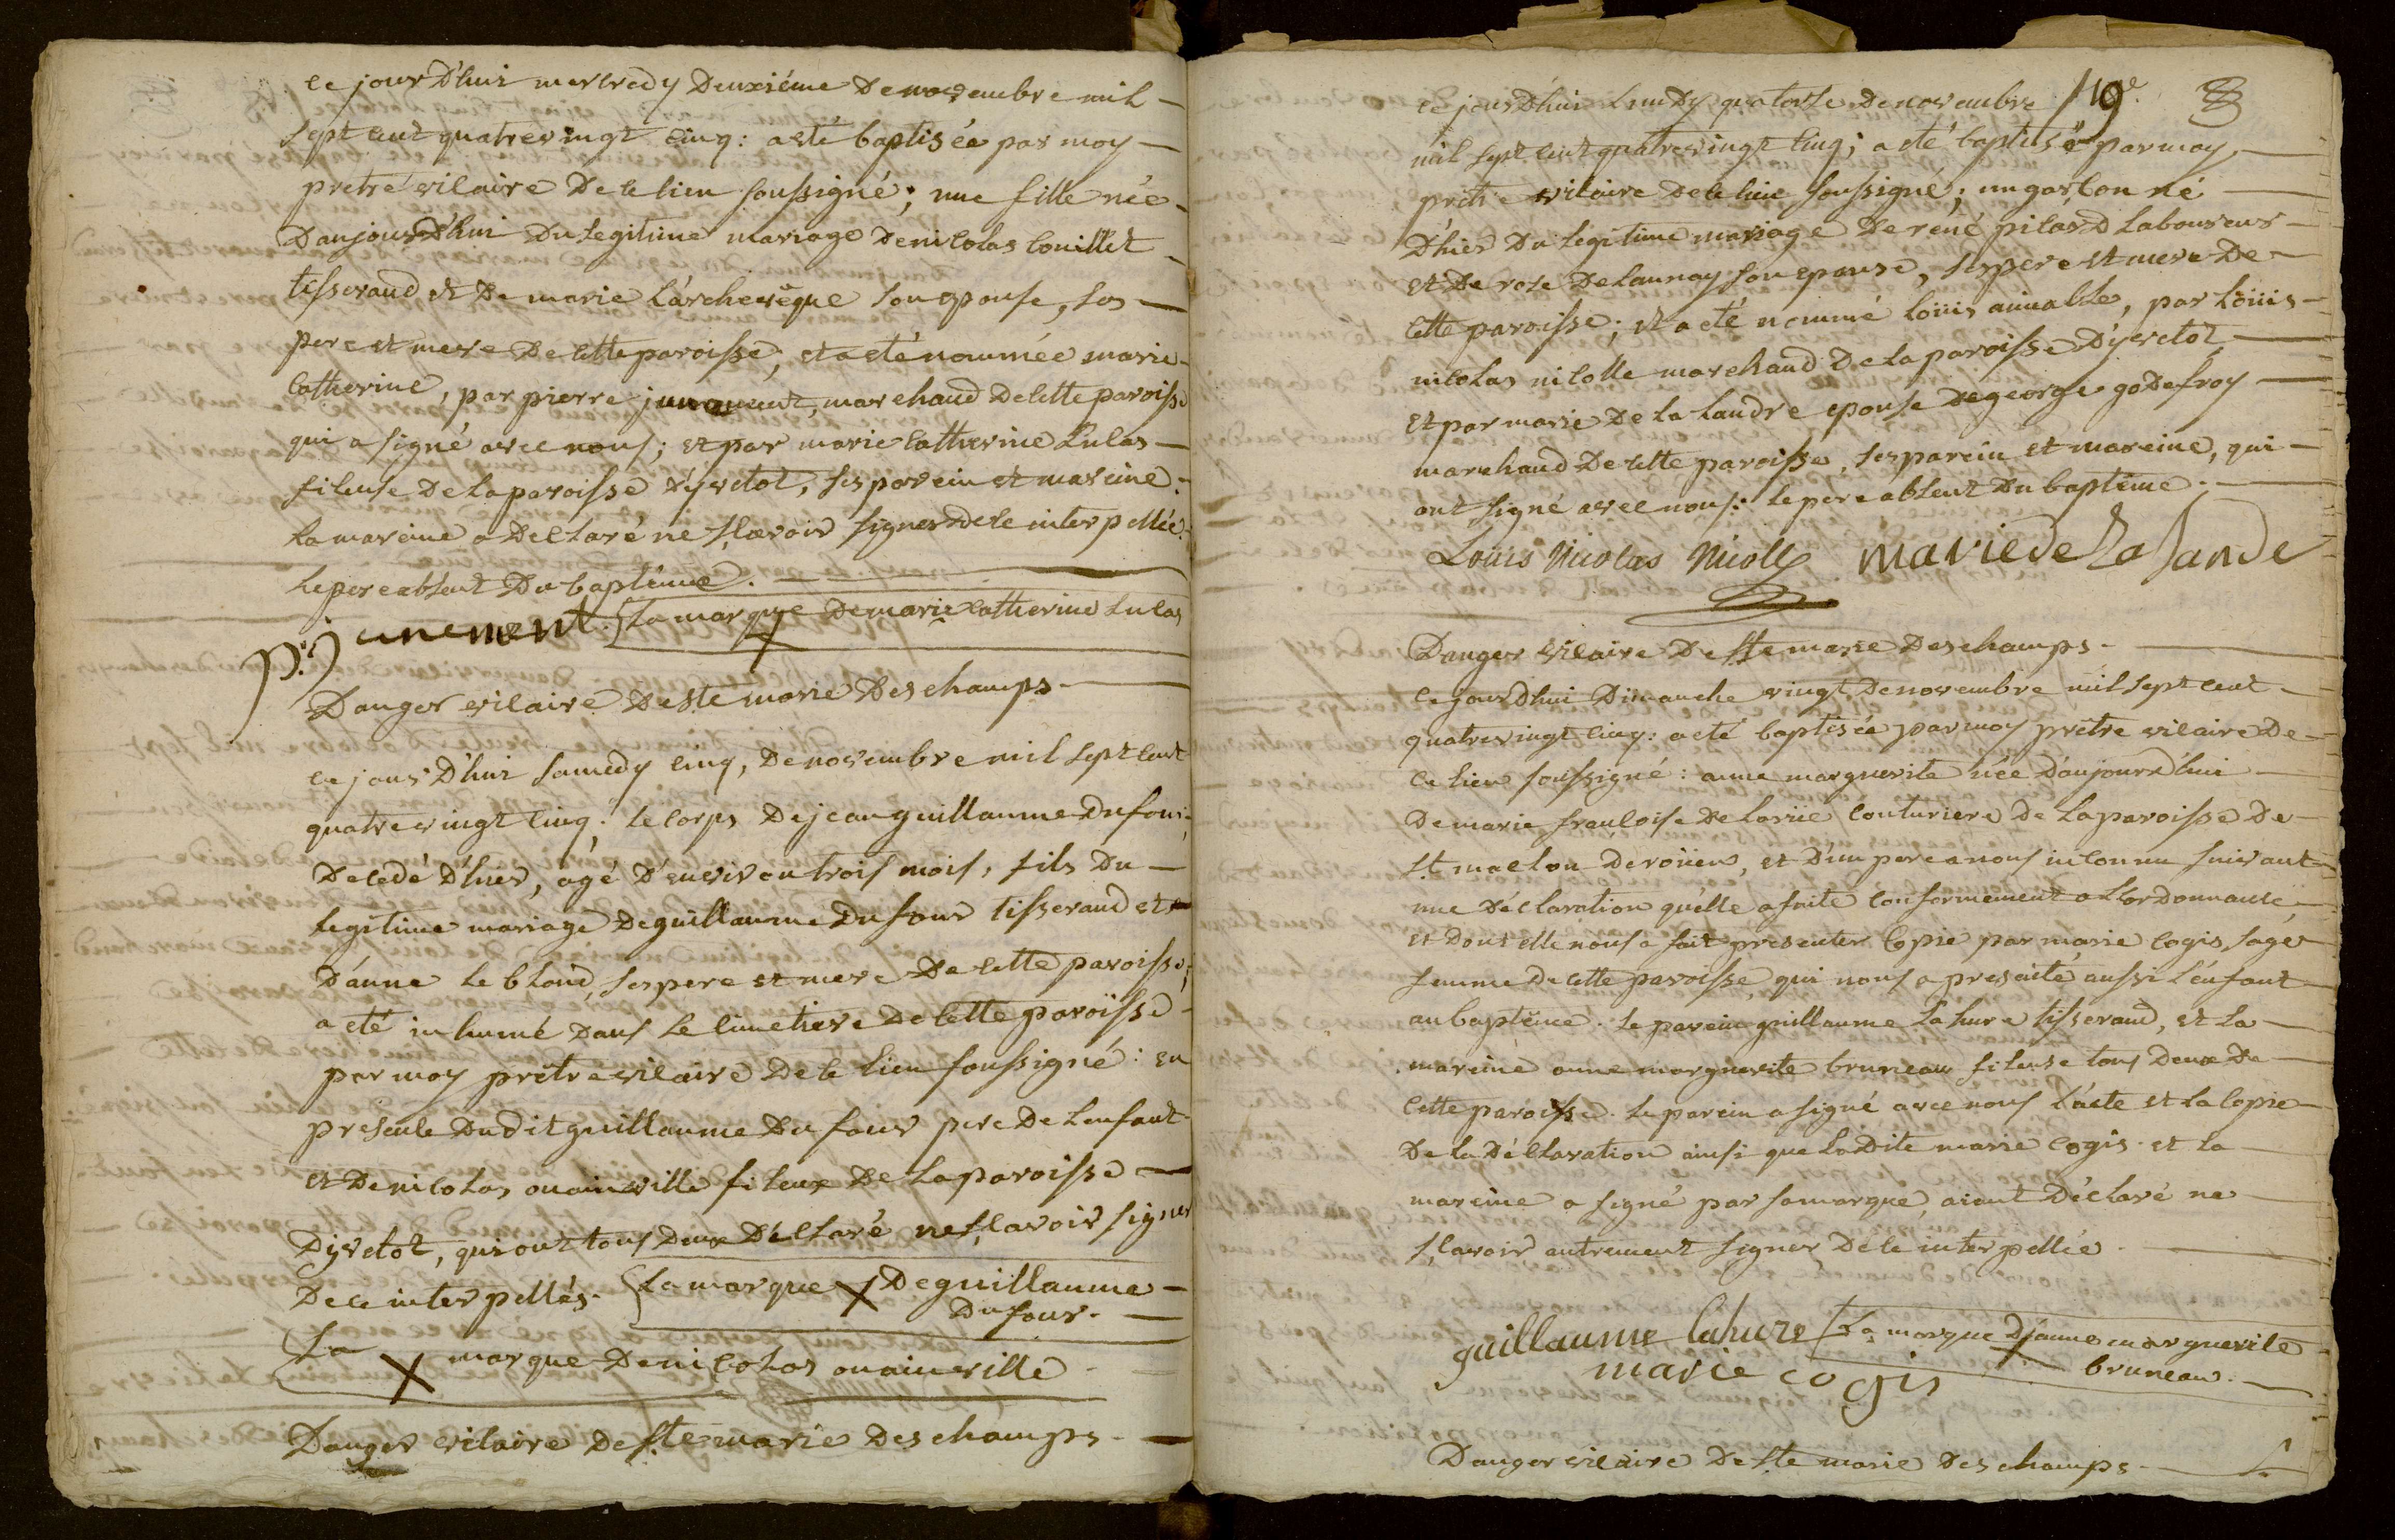 ce jour D'hui mercredy Deuxiéme De novembre mil
sept cent quatrevingt cinq : a eté baptisée par moy
prétre vicaire De ce lieu soussigné ; une fille née
D'aujourd'hui Du legitime mariage De nicolas couillet
tisserand et De marie l'archevêque son epouse, ses
pere et mere De cette paroisse ; et a eté nommée marie
catherine, par pierre junement, marchand De cette paroisse
qui a signé avec nous ; et par marie catherine Lucas
fileuse De la paroisse D'yvetot, ses parein et mareine :
la mareine a Declaré ne sçavoir signer De ce interpellée.
le pere absent Du baptême.
p. junement. la marque De marie catherine Lucas
Danger vicaire De Ste marie Des champs
ce jour D'hui samedy cinq, De novembre mil sept cent
quatrevingt cinq : le corps De jean guillaume Dufour,
Decedé D'hier, agé D'environ trois mois, fils Du
legitime mariage De guillaume Dufour tisserand et
D'anne le blond, ses pere et mere De cette paroisse ;
a eté inhumé Dans le cimetiere De cette paroisse
par moy prétre vicaire De ce lieu soussigné : en
présence Dudit guillaume Dufour pere De l'enfant
et De nicolas ouainville fileur De la paroisse
D'yvetot, qui ont tous Deux Déclaré ne sçavoir signer
De ce interpellés. la marque X De guillaume
Dufour.
la X marque De nicolas ouainville
Danger vicaire De Ste marie Des champs.
ce jour D'hui lundy quatorze De novembre 19e. 8
mil sept cent quatrevingt cinq ; a eté baptisé par moy
prétre vicaire De ce lieu soussigné ; un garcon né
D'hier Du légitime mariage De réné picard laboureur
et De rose Delaunay son epouse, ses pere et mere De
cette paroisse ; et a eté nommé loüis aimable, par loüis
nicolas nicolle marchand De la paroisse D'yvetot
et par marie De la landre epouse De george goDefroy
marchand De cette paroisse, ses parein et mareine, qui
ont signé avec nous : le pere absent Du baptême.
Louis Nicolas Nicolle marie de la lande
Danger vicaire De Ste marie Des champs.
ce jour D'hui Dimanche vingt De novembre mil sept cent
quatrevingt cinq : a eté baptisée par moy prétre vicaire De
ce lieu soussigné : anne marguerite née D'aujourd'hui
De marie francoise De larüe couturiere De la paroisse De
st maclou De roüen, et D'un pere a nous inconnu suivant
une Déclaration qu'elle a faite conformement a l'ordonnance,
et Dont elle nous a fait presenter copie par marie cogis, sage
femme De cette paroisse, qui nous a presenté aussi l'enfant
au baptême. le parein guillaume lahure tisserand, et la
mareine anne marguerite bruneau fileuse tous Deux De
cette paroisse. le parein a signé avec nous l'acte et la copie
De la Déclaration ainsi que la Dite marie cogis. et la
mareine a signé par sa marque, aiant Déclaré ne
sçavoir autrement signer De ce interpellée.
guillaume lahure la marque D'anne marguerite
marie cogis bruneau.
Danger vicaire De Ste marie Des champs.